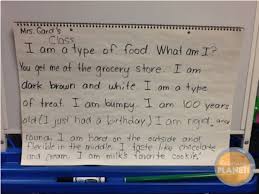 Mrs. Gard's
Class
I am a type of food. What am I?
You get me at the grocery store. I am
dark brown and white. I am a type
of treat. I am bumpy. I am 100 years
old (I just had a birthday) I am rigid, and
round. I am hard on the outside and
flexible in the middle. I taste like chocolate
and cream. I am milk's favorite cookie.
PLANET